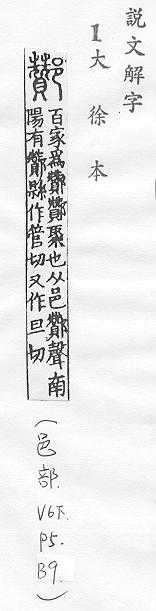 說文解字
1大徐本
酇 百家爲酇酇聚也从邑贊聲南
陽有酇縣作管切又作旦切
(邑部.
V6下.
P5.
B9.)